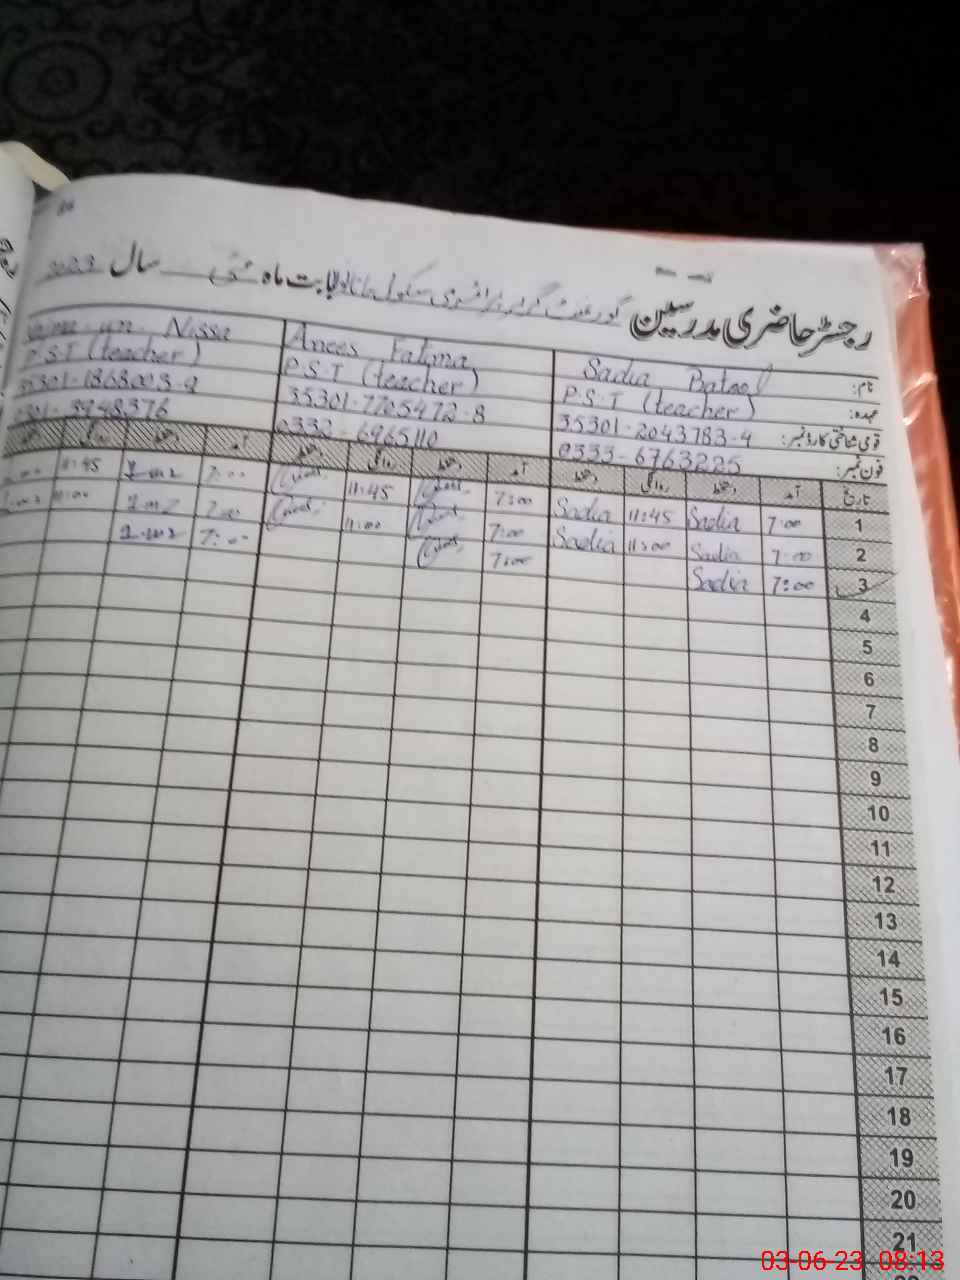 رجسٹر حاضری مدرسین گورنمنٹ گرلز پرائمری سکول بابت ماہ مئی سال 2023
نام: Sadia Batool Anees Fatima Nissa
عہدہ: P.S.T (teacher) P.S.T (teacher) P.S.T (teacher)
قومی شناختی کارڈ نمبر: 35301-2043783-4 35301-7705472-8 35301-1868003-2
فون نمبر: 0333-6763225 0332-6965110 0301-3948376
تاریخ آمد دستخط روانگی دستخط آمد دستخط روانگی دستخط آمد دستخط روانگی دستخط
1 7:00 Sadia 11:45 Sadia 7:00 11:45 7:00 11:45
2 7:00 Sadia 11:00 Sadia 7:00 11:00 7:00 11:00
3 7:00 Sadia 7:00 7:00
4
5
6
7
8
9
10
11
12
13
14
15
16
17
18
19
20
21
03-06-23 08:13